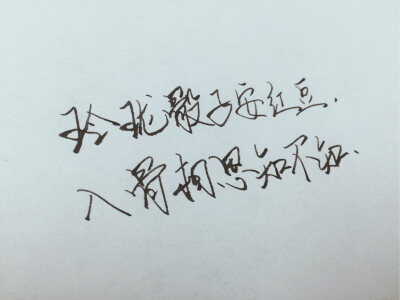 玲珑骰子安红豆.
入骨相思知不知.